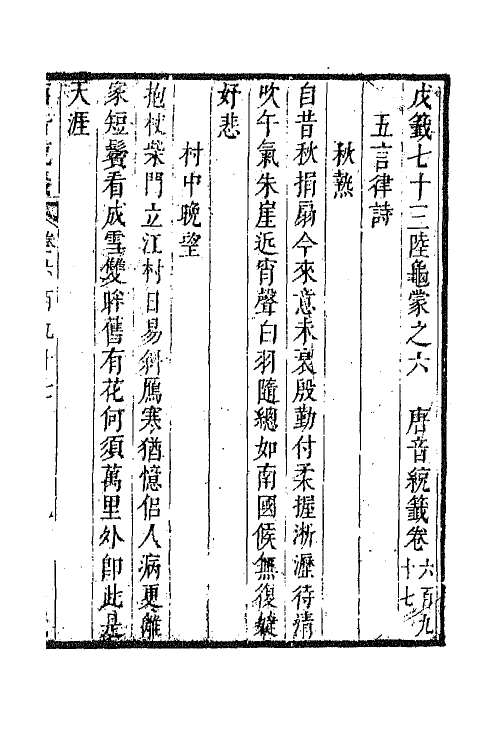 戊籤七十三陸龜蒙之六　唐音統籤卷六百九十七
五言律詩
秋熱
自昔秋捐扇今來意未衰殷勤付柔握淅瀝待清
吹午氣朱崖近宵聲白羽隨總如南國候無復婕
好悲
村中晚望
抱杖柴門立江村日易斜鴈寒猶憶侣人病更離
家短鬢看成雪雙眸舊有花何須萬里外卽此是
天涯
卷六百九十七